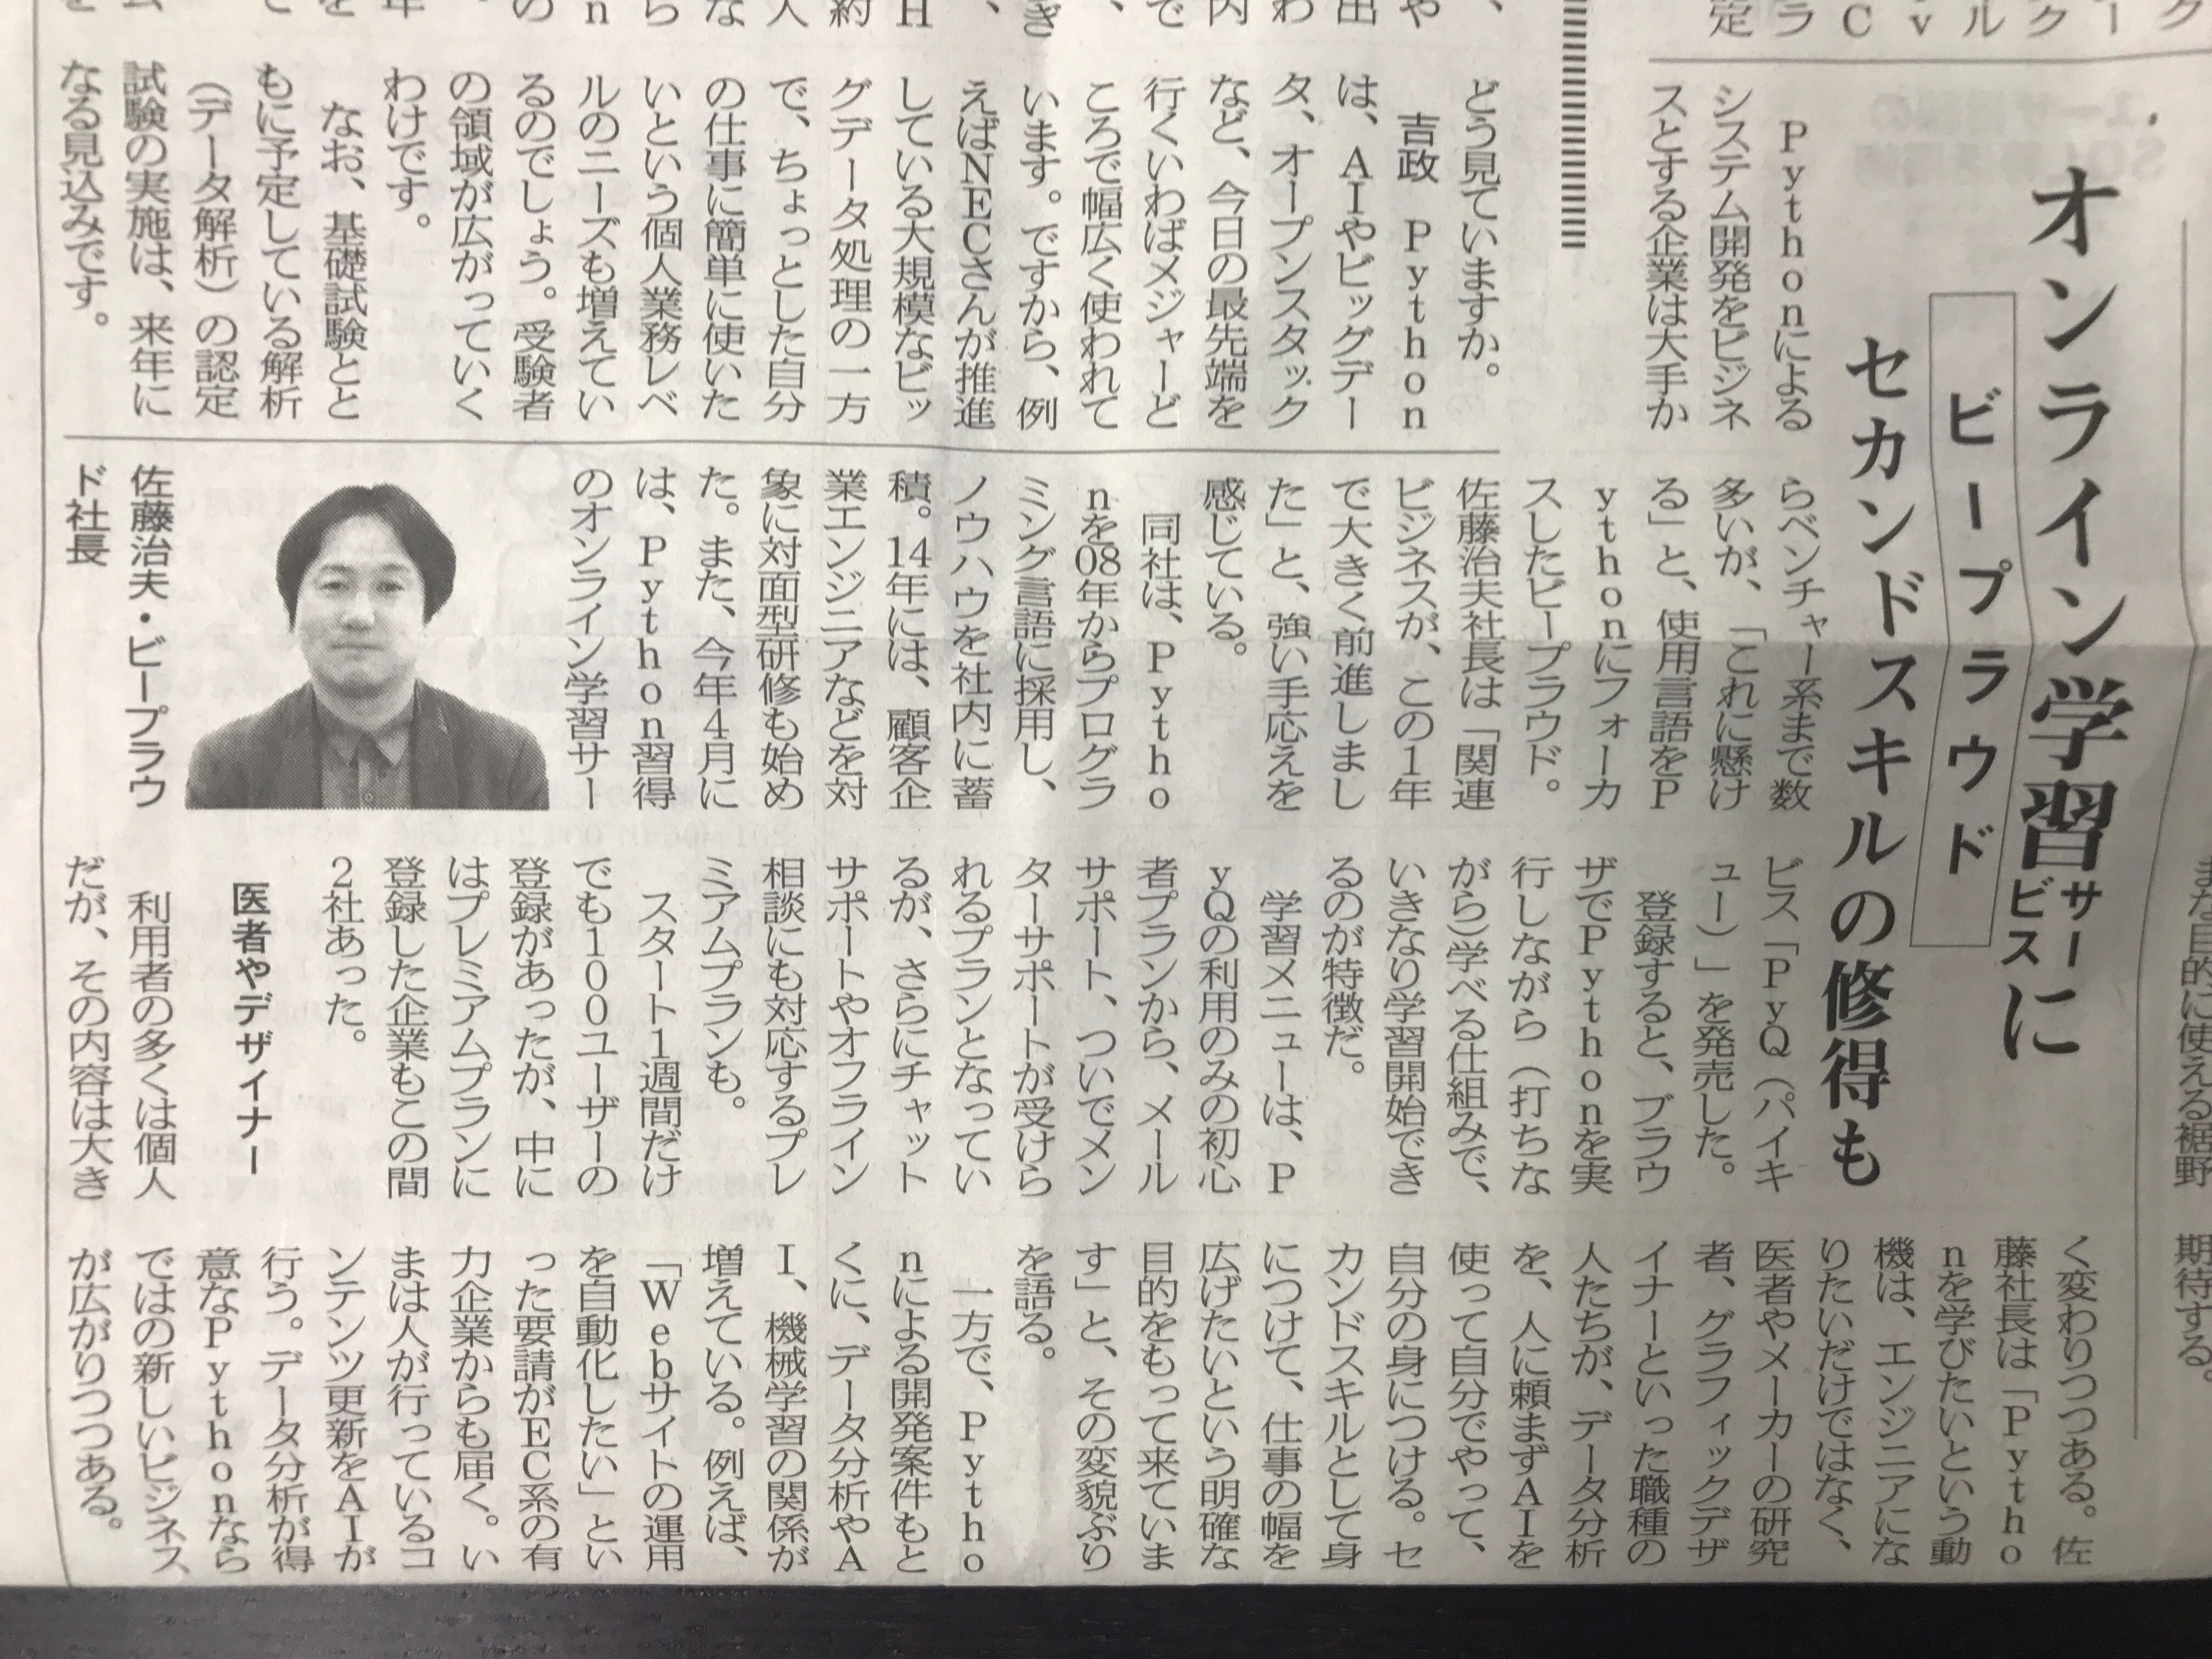 オンライン学習サービスに
ビープラウド
セカンドスキルの修得も
Pythonによる
システム開発をビジネ
スとする企業は大手か
らベンチャー系まで数
多いが、「これに懸け
る」と、使用言語をP
ythonにフォーカ
スしたビープラウド。
佐藤治夫社長は「関連
ビジネスが、この1年
で大きく前進しまし
た」と、強い手応えを
感じている。
同社は、Pytho
nを08年からプログラ
ミング言語に採用し、
ノウハウを社内に蓄
積。14年には、顧客企
業エンジニアなどを対
象に対面型研修も始め
た。また、今年4月に
は、Python習得
のオンライン学習サー
佐藤治夫・ビープラウ
ド社長
ビス「PyQ(パイキ
ュー)」を発売した。
登録すると、ブラウ
ザでPythonを実
行しながら(打ちな
がら)学べる仕組みで、
いきなり学習開始でき
るのが特徴だ。
学習メニューは、P
yQの利用のみの初心
者プランから、メール
サポート、ついでメン
ターサポートが受けら
れるプランとなってい
るが、さらにチャット
サポートやオフライン
相談にも対応するプレ
ミアムプランも。
スタート1週間だけ
でも100ユーザーの
登録があったが、中に
はプレミアムプランに
登録した企業もこの間
2社あった。
医者やデザイナー
利用者の多くは個人
だが、その内容は大き
く変わりつつある。佐
藤社長は「Pytho
nを学びたいという動
機は、エンジニアにな
りたいだけではなく、
医者やメーカーの研究
者、グラフィックデザ
イナーといった職種の
人たちが、データ分析
を、人に頼まずAIを
使って自分でやって、
自分の身につける。セ
カンドスキルとして身
につけて、仕事の幅を
広げたいという明確な
目的をもって来ていま
す」と、その変貌ぶり
を語る。
一方で、Pytho
nによる開発案件もと
くに、データ分析やA
I、機械学習の関係が
増えている。例えば、
「Webサイトの運用
を自動化したい」とい
った要請がEC系の有
力企業からも届く。い
まは人が行っているコ
ンテンツ更新をAIが
行う。データ分析が得
意なPythonなら
ではの新しいビジネス
が広がりつつある。
どう見ていますか。
吉政 Python
は、AIやビッグデー
タ、オープンスタック
など、今日の最先端を
行くいわばメジャーど
ころで幅広く使われて
います。ですから、例
えばNECさんが推進
している大規模なビッ
グデータ処理の一方
で、ちょっとした自分
の仕事に簡単に使いた
いという個人業務レベ
ルのニーズも増えてい
るのでしょう。受験者
の領域が広がっていく
わけです。
なお、基礎試験とと
もに予定している解析
(データ解析)の認定
試験の実施は、来年に
なる見込みです。
期待する。